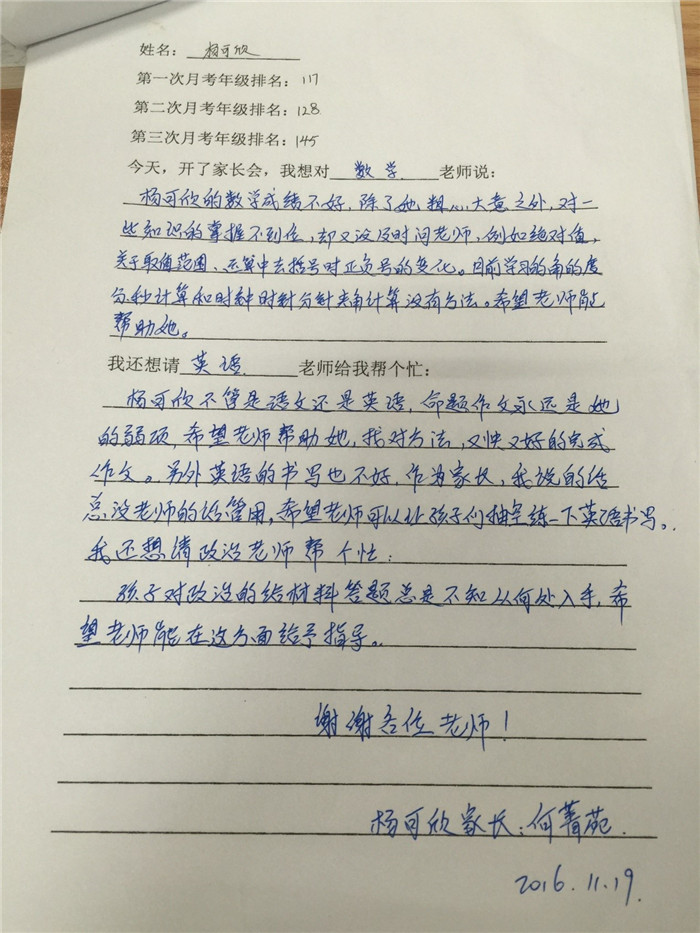 姓名：杨可欣
第一次月考年级排名：117
第二次月考年级排名：128
第三次月考年级排名：145
今天，开了家长会，我想对 数学 老师说：
杨可欣的数学成绩不好，除了她粗心大意之外，对一
些知识的掌握不到位，却又没及时问老师，例如绝对值，
关于取值范围、还算中去括号时正负号的变化。目前学习的角的度
分秒计算和时钟时针分针夹角计算没有方法。希望老师能
帮助她。
我还想请 英语 老师给我帮个忙：
杨可欣不管是语文还是英语，命题作文永远是她
的弱项，希望老师帮助她，找对方法，又快又好的完成
作文。另外英语的书写也不好，作为家长，我说的话
总没老师的话管用，希望老师可以让孩子们抽空练一下英语书写。
我还想请政治老师帮个忙：
孩子对政治的给材料答题总是不知从何处入手，希
望老师能在这方面给予指导。
谢谢各位老师！
杨可欣家长：何菁苑
2016.11.19.